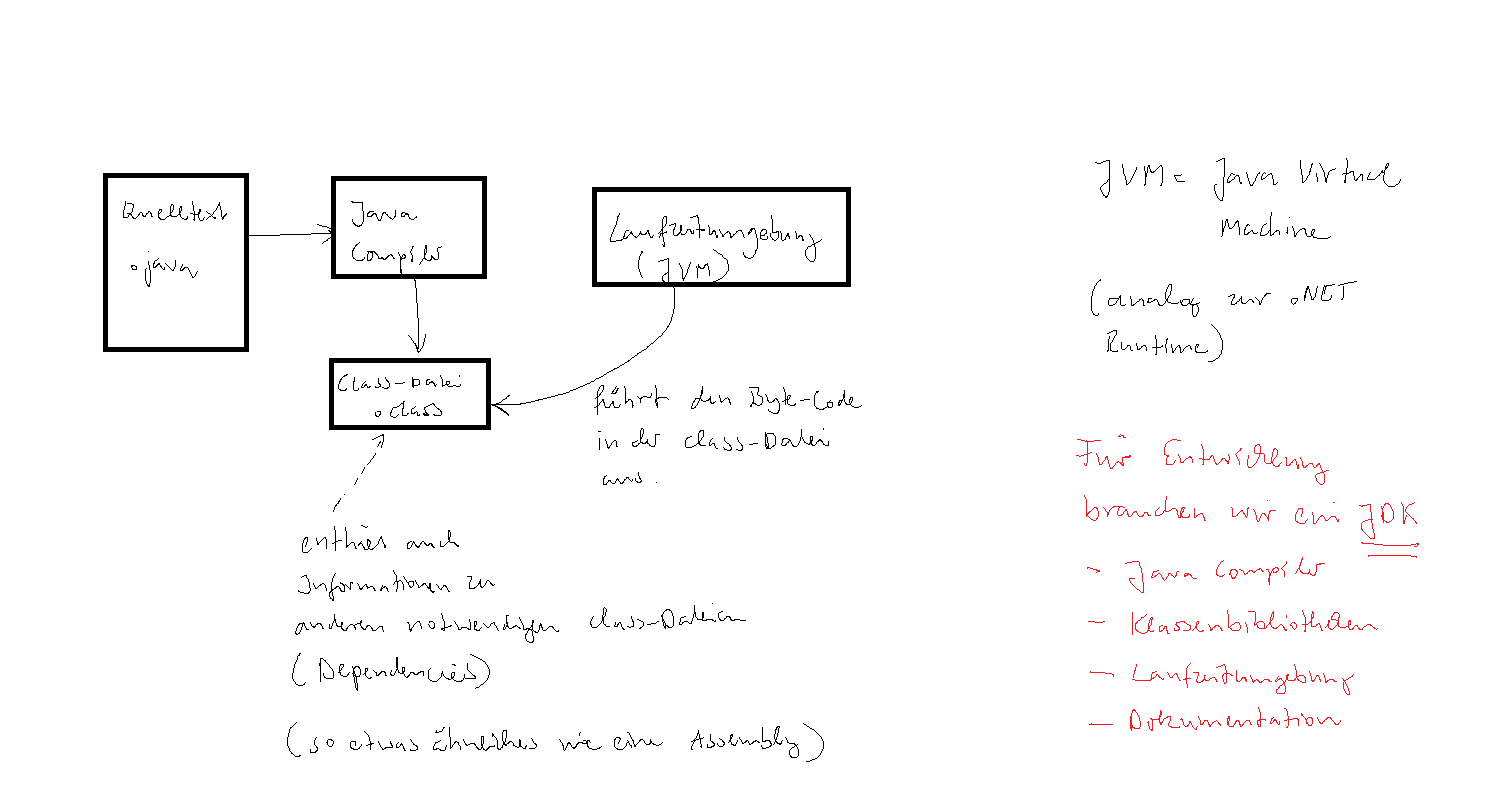 Quelltext
.java
Java
Compiler
Laufzeitumgebung
(JVM)
Class-Datei
.class
führt den Byte-Code
in der class-Datei
aus.
enthält auch
Informationen zu
anderen notwendigen class-Dateien
(Dependencies)
(so etwas ähnliches wie eine Assembly)
JVM = Java Virtual
Machine
(analog zur .NET
Runtime)
Für Entwicklung
brauchen wir ein JDK
- Java Compiler
- Klassenbibliotheken
- Laufzeitumgebung
- Dokumentation